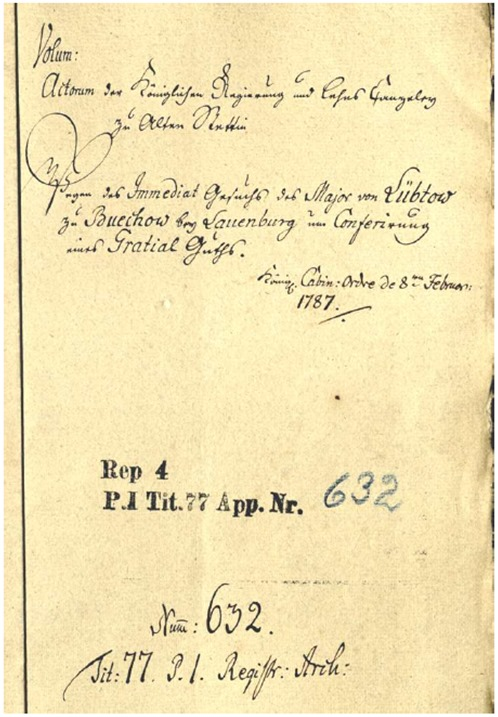 Volum:
Actorum der Königlichen Regierung und Lehns Cantzeley
zu Alten Stettin
Wegen des Immediat Gesuchs des Major von Lübtow
zu Buechow bey Lauenburg um Conferirung
eines Gratial Guths.
Königl. Cabin: Ordre de 8ten Februar:
1787.
Rep 4
P.I Tit.77 App. Nr. 632
Num: 632.
Tit: 77. P. 1. Registr: Arch: